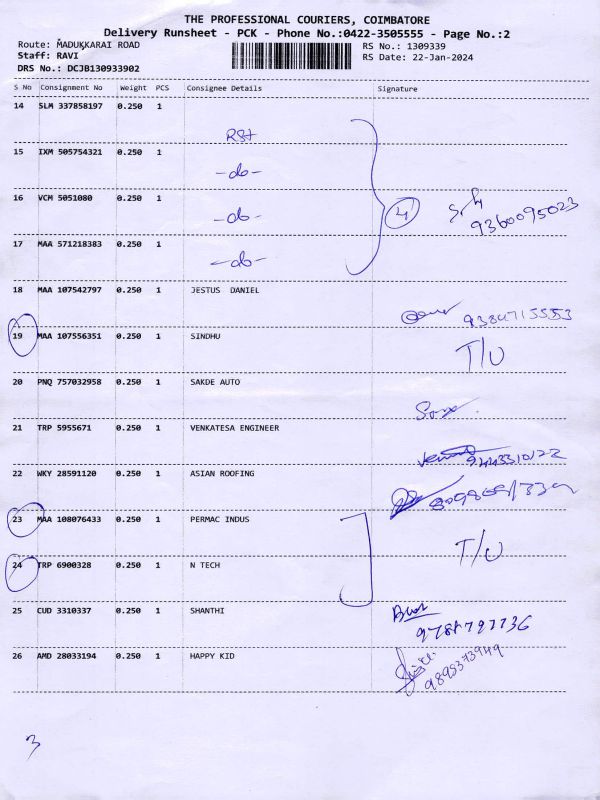 THE PROFESSIONAL COURIERS, COIMBATORE
Delivery Runsheet - PCK - Phone No.:0422-3505555 - Page No.:2
Route: MADUKKARAI ROAD
RS No.: 1309339
Staff: RAVI
RS Date: 22-Jan-2024
DRS No.: DCJB130933902
S No Consignment No Weight PCS Consignee Details Signature
14 SLM 337858197 0.250 1
RSt
15 IXM 505754321 0.250 1
-do-
16 VCM 5051080 0.250 1
-do-
4
9360095023
17 MAA 571218383 0.250 1
-do-
18 MAA 107542797 0.250 1 JESTUS DANIEL
9384715553
19 MAA 107556351 0.250 1 SINDHU
T/U
20 PNQ 757032958 0.250 1 SAKDE AUTO
21 TRP 5955671 0.250 1 VENKATESA ENGINEER
9443310122
22 WKY 28591120 0.250 1 ASIAN ROOFING
23 MAA 108076433 0.250 1 PERMAC INDUS
T/U
24 TRP 6900328 0.250 1 N TECH
25 CUD 3310337 0.250 1 SHANTHI
26 AMD 28033194 0.250 1 HAPPY KID
9895373949
3